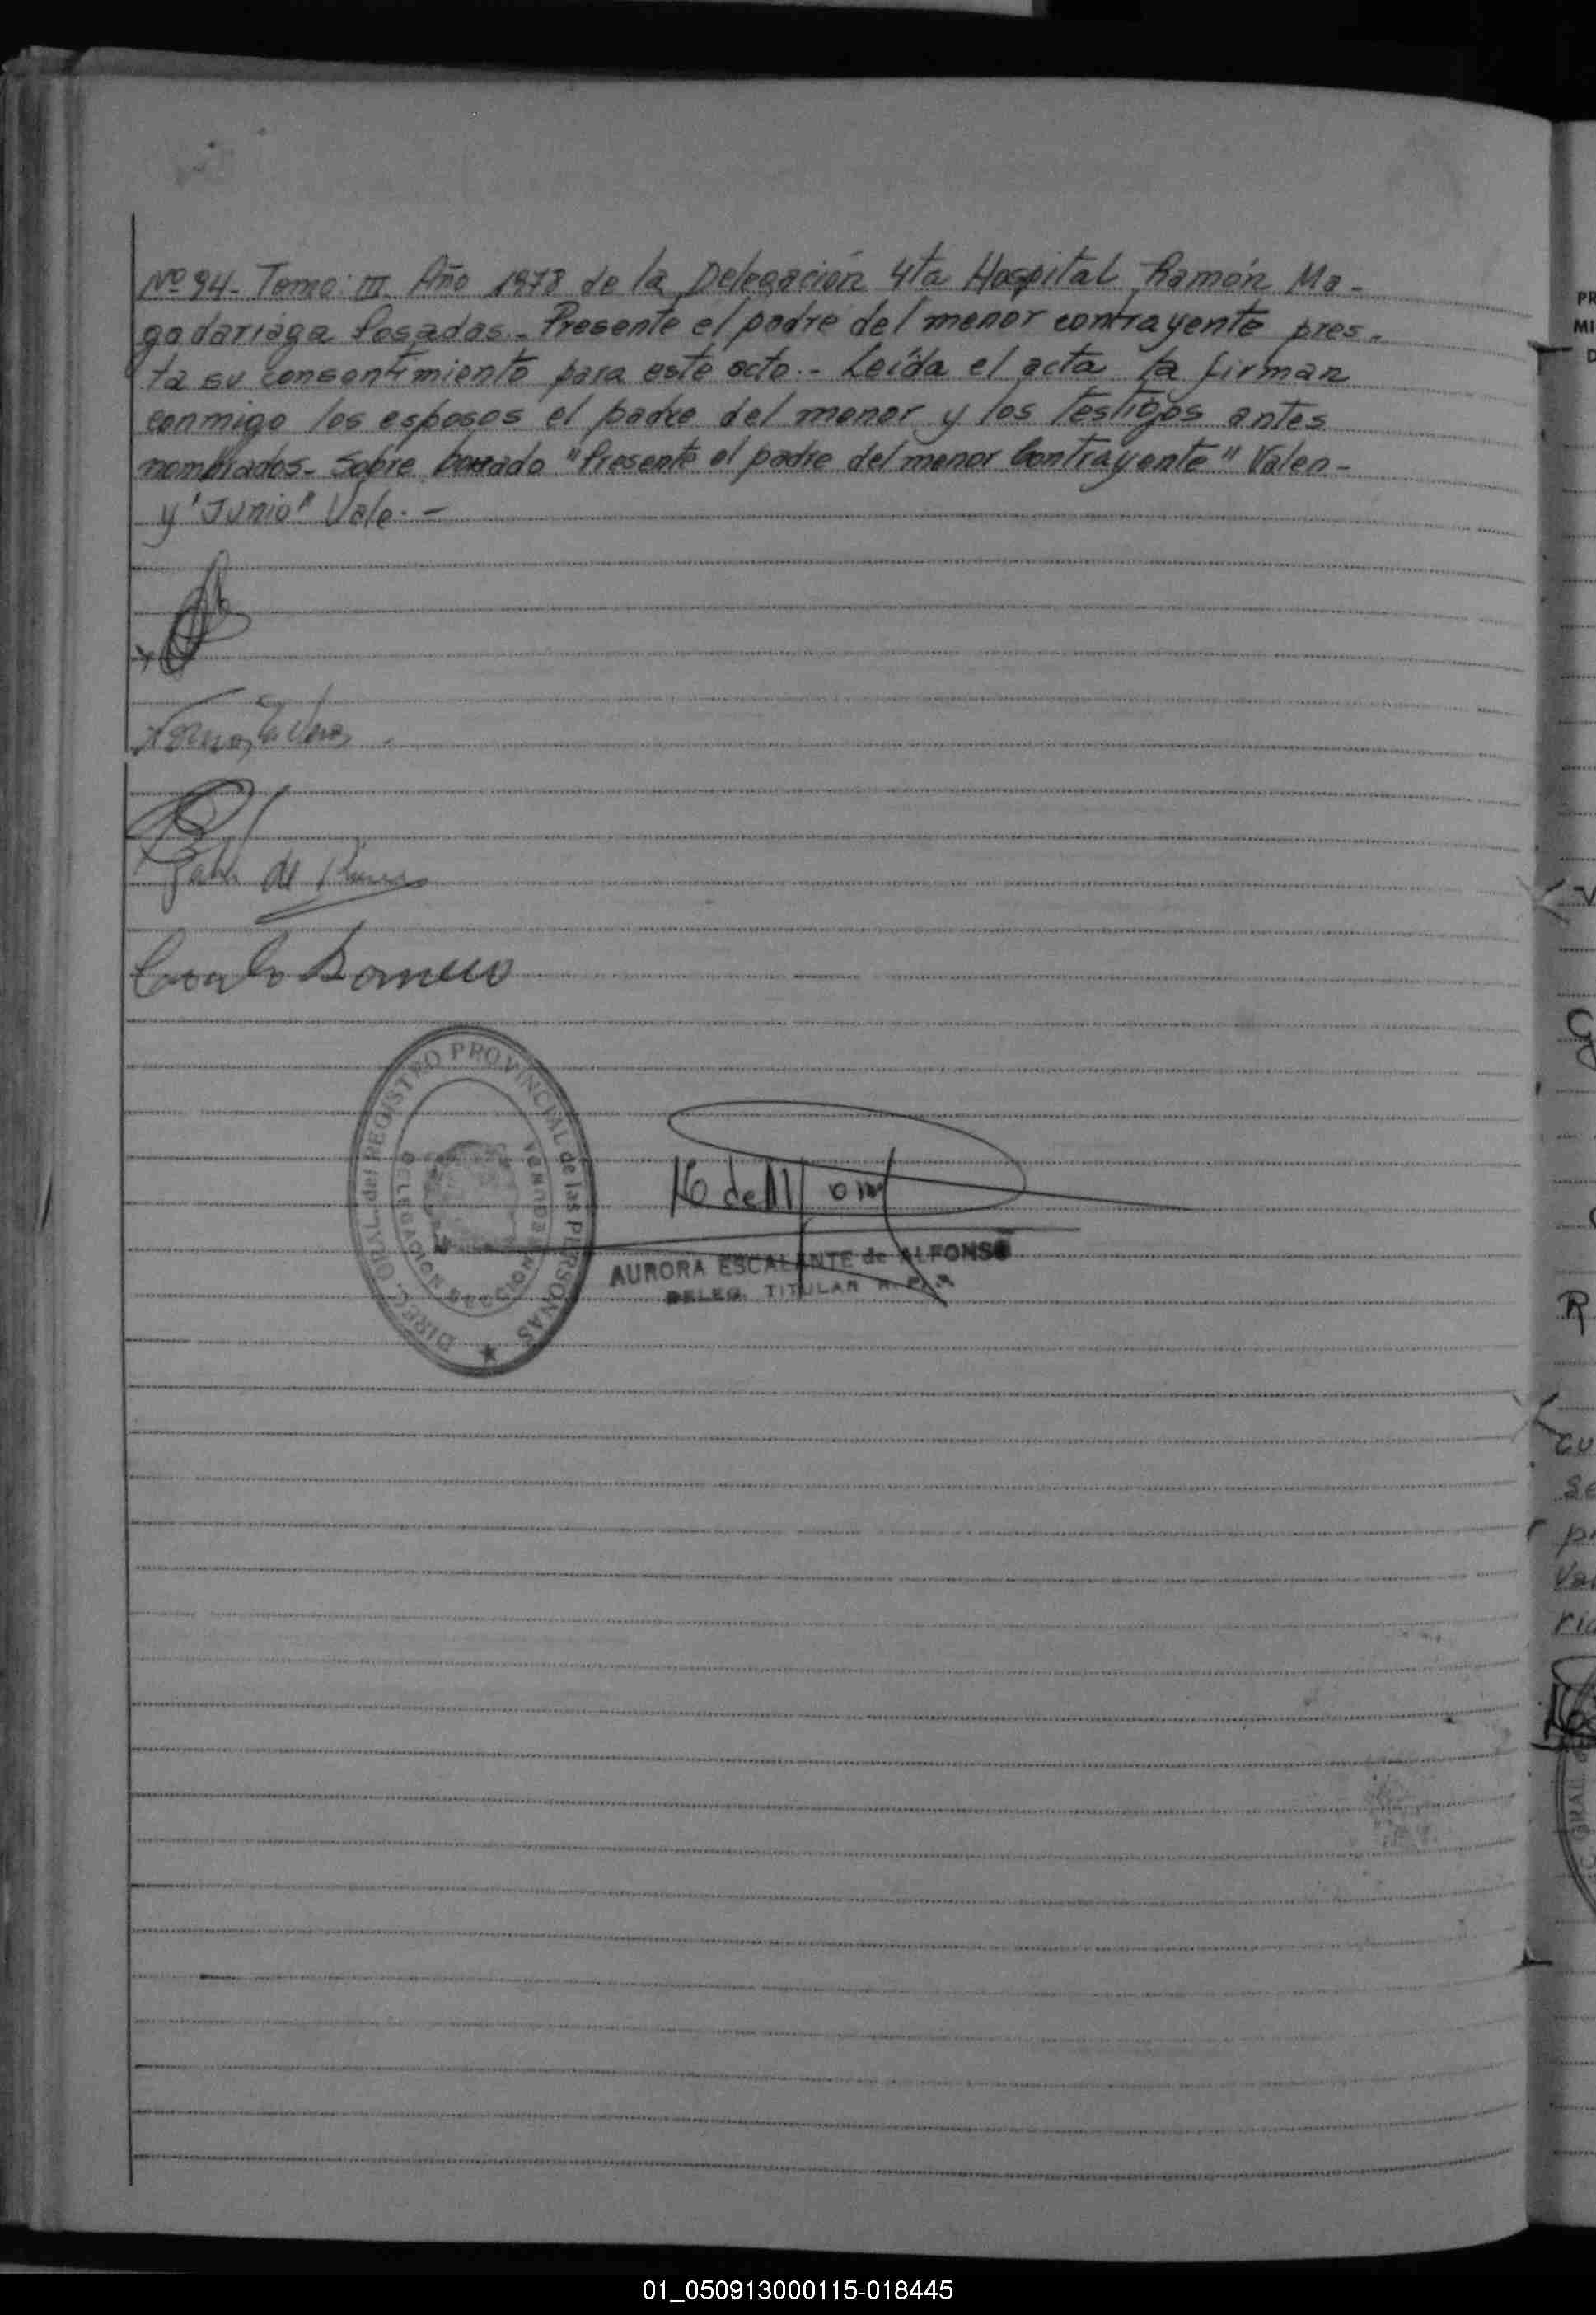 Nº 94- Tomo: III Año 1978 de la Delegación 4ta Hospital Ramón Ma-
gadariaga Posadas.- Presente el padre del menor contrayente pres-
ta su consentimiento para este acto.- Leída el acta la firman
conmigo los esposos el padre del menor y los testigos antes
nombrados- Sobre borrado "Presente el padre del menor Contrayente" Valen-
y "Junio" Vale.-
Romero
DIREC. GRAL. del REGISTRO PROVINCIAL de las PERSONAS
DELEGACION SECCION SEGUNDA
AURORA ESCALANTE de ALFONSO
DELEG. TITULAR R. P. P.
PR
MI
D
V
G
R
cu
se
pr
Va
ria
01_050913000115-018445